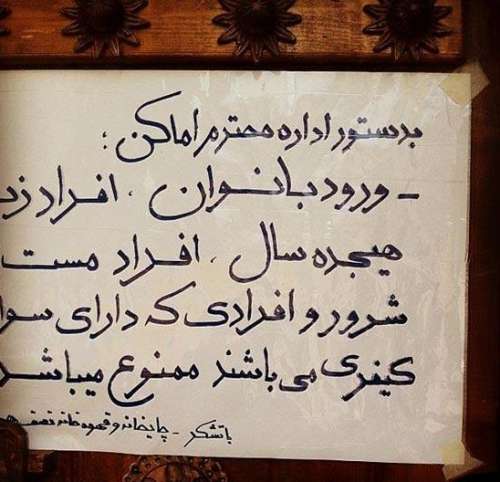 بدستور اداره محترم اماکن :
- ورود بانوان ، افراد
هیجده سال ، افراد مست
شرور و افرادی که دارای
کیفری می باشند ممنوع میباشد
باتشکر - چایخانه و قهوه خانه